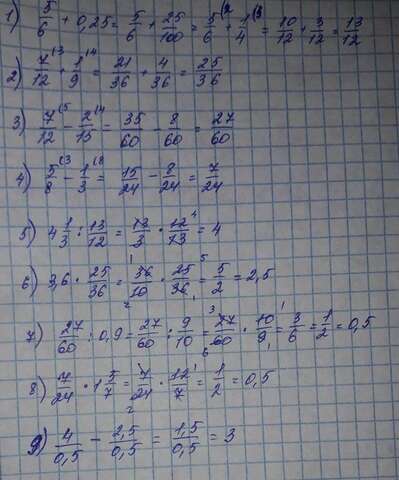 1) 5/6 + 0,25 = 5/6 + 25/100 = 5/6 (2 + 1/4 (3 = 10/12 + 3/12 = 13/12
2) 7/12 (3 + 1/9 (4 = 21/36 + 4/36 = 25/36
3) 7/12 (5 - 2/15 (4 = 35/60 - 8/60 = 27/60
4) 5/8 (3 - 1/3 (8 = 15/24 - 8/24 = 7/24
5) 4 1/3 : 13/12 = 13/3 · 12/13 4 = 4
6) 3,6 · 25/36 = 36/10 1 2 · 25/36 5 1 = 5/2 = 2,5
7) 27/60 : 0,9 = 27/60 : 9/10 = 3 27/60 6 · 10/9 1 1 = 3/6 = 1/2 = 0,5
8) 7/24 · 1 5/7 = 7/24 1 2 · 12/7 1 = 1/2 = 0,5
9) 4/0,5 - 2,5/0,5 = 1,5/0,5 = 3